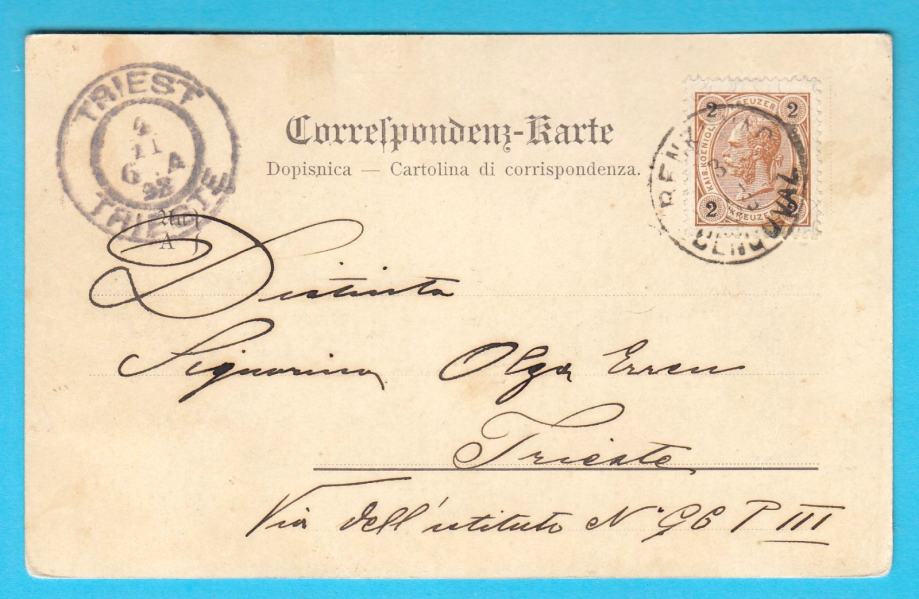 TRIEST
11
TRIESTE
Correspondenz-Karte
Dopisnica — Cartolina di corrispondenza.
2 KREUZER 2
KAIS. KOENIGL.
2 KREUZER 2
BENKOVAC
An
A
Distinta
Signorina Olga
Trieste
Via dell'istituto N° 96 P III